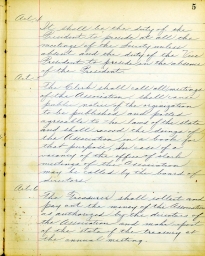 5
Art. 4
It shall be the duty of the
President to preside at all the
meetings of the Society unless
absent and the duty of the Vice
President to preside in the absence
of the President.
Art. 5
The Clerk shall call all meetings
of the Association, shall cause
public notice of the organization
to be published and posted
agreeable to the laws of the state
and shall record the doings of
the Association in a book for
that purpose. In case of a
vacancy of the office of clerk
meetings of the Association
may be called by the board of
directors.
Art. 6
The Treasurer shall collect and
pay out the money of the Association
as authorized by the directors of
the Association and make report
of the state of the treasury at
the annual meeting.